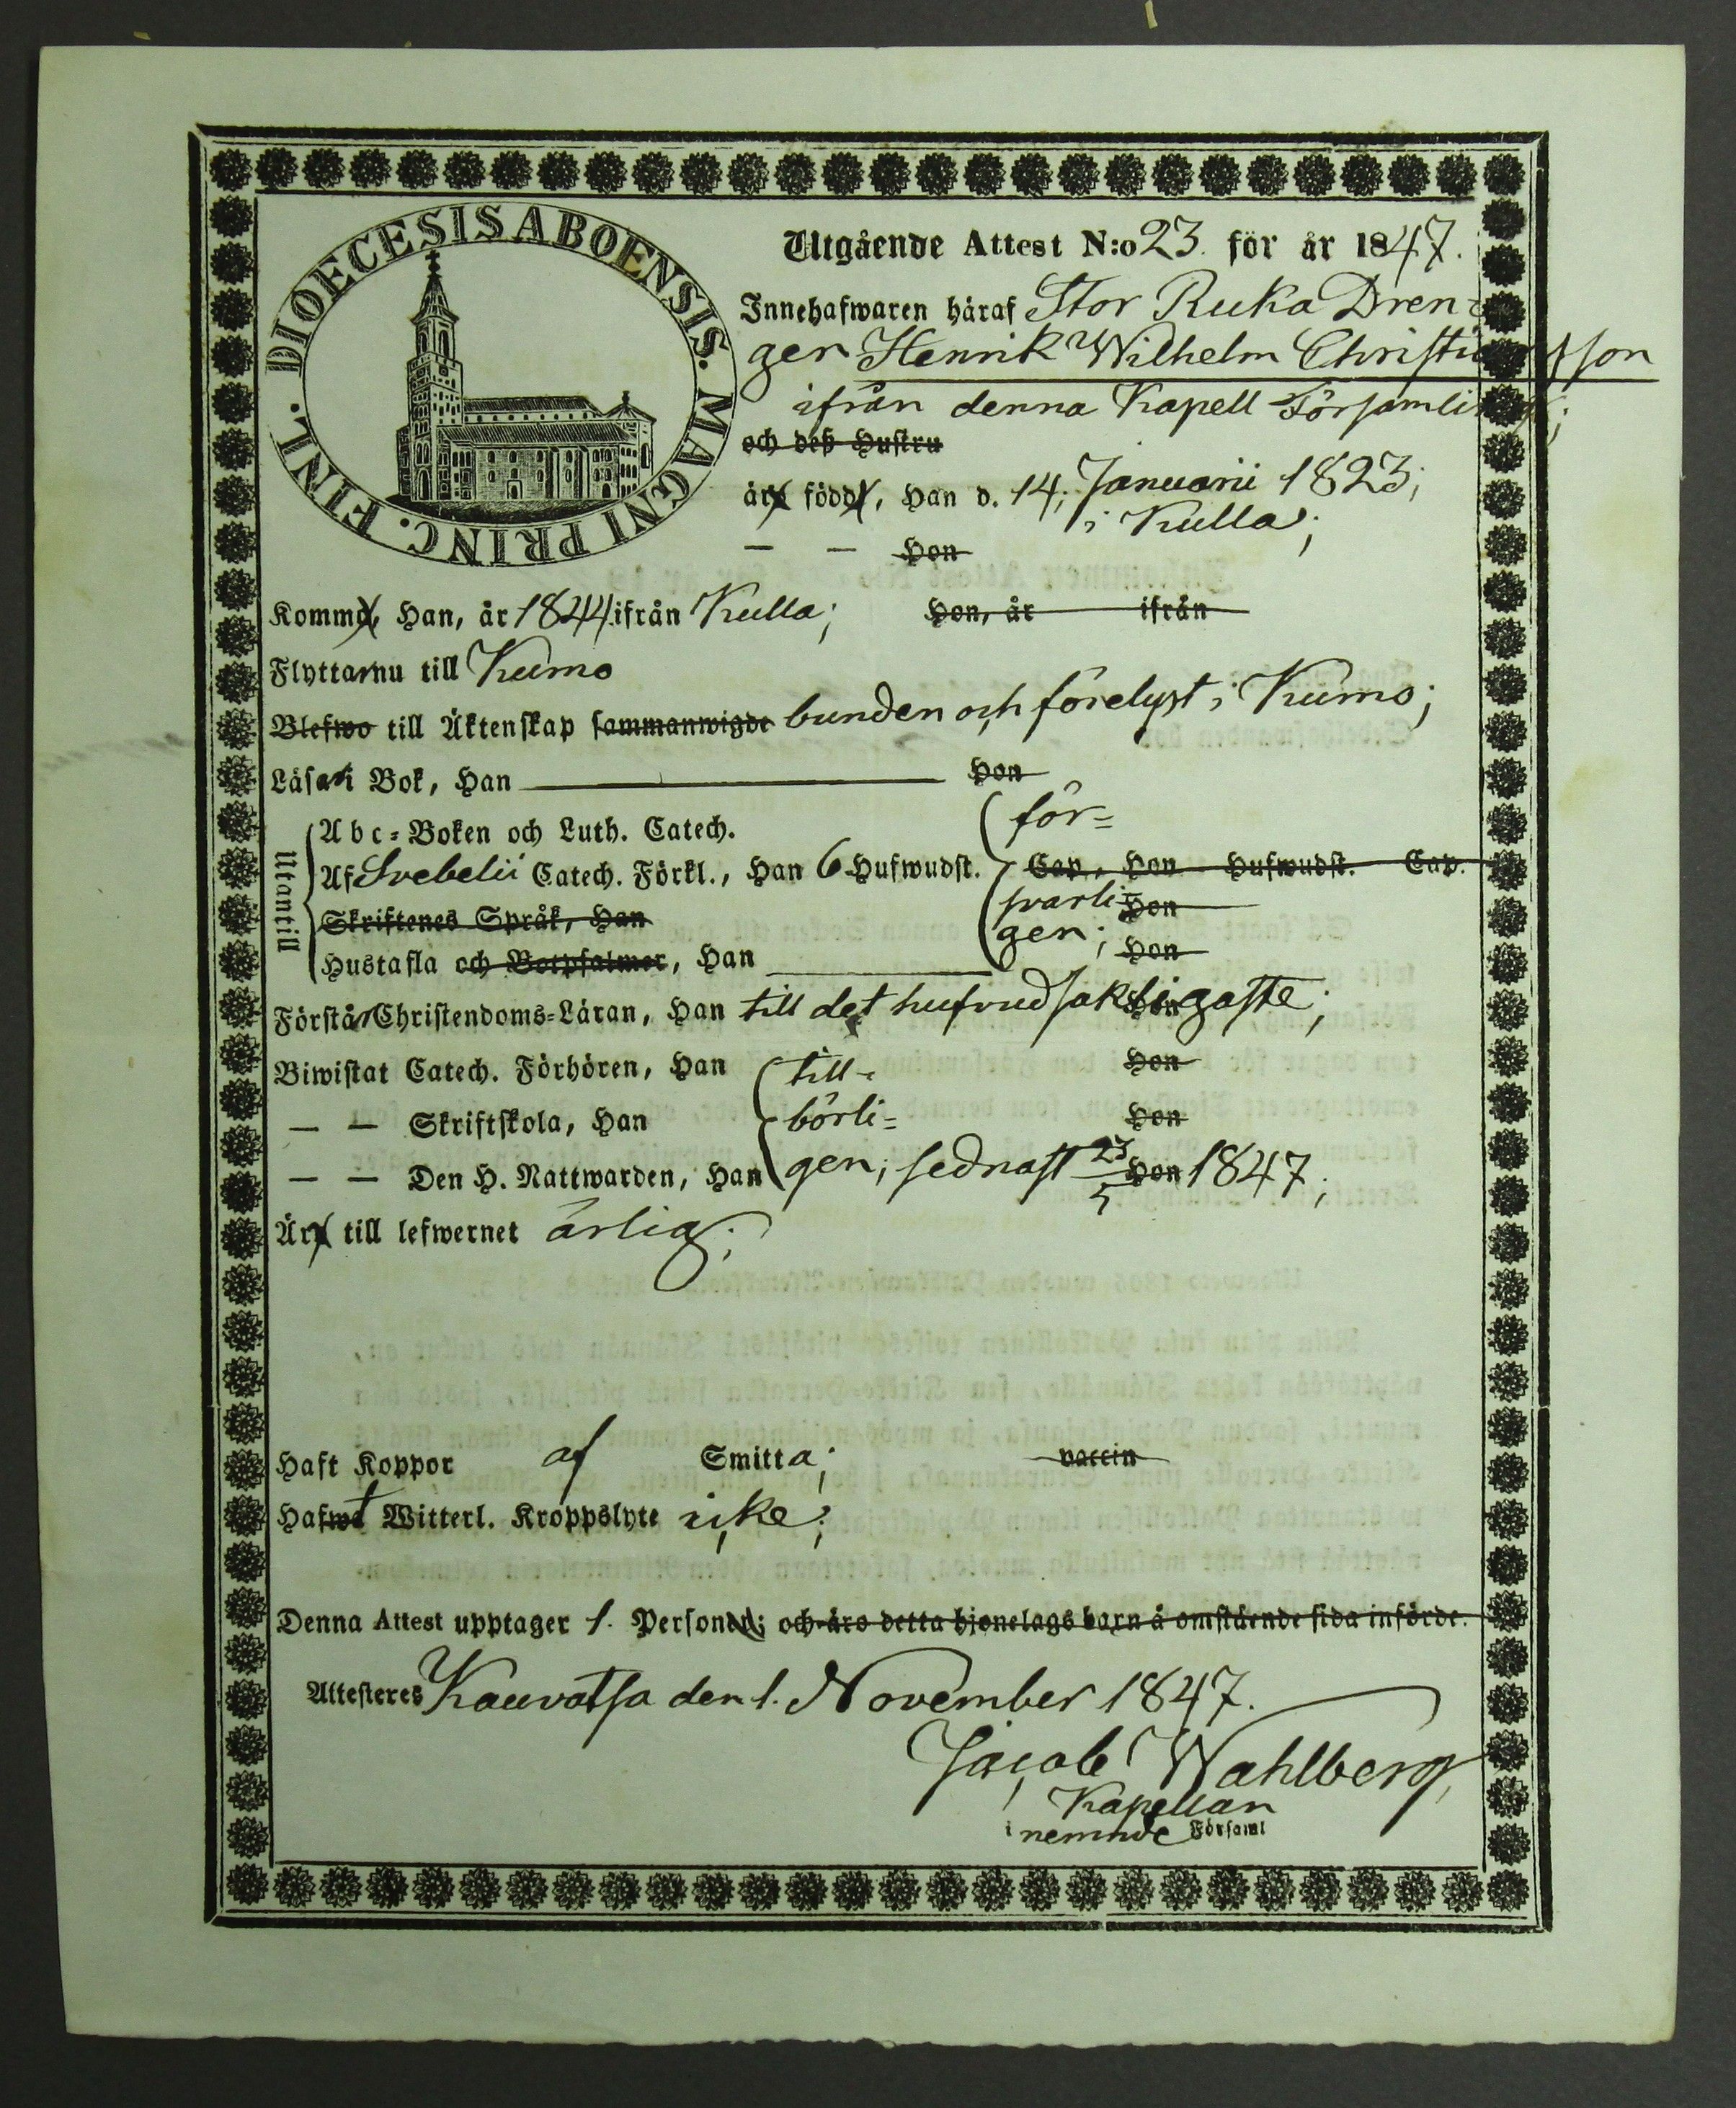 DIOECESIS ABOENSIS. MAGNI PRINC. FINL.
Utgående Attest N:o 23. för år 1847.
Innehafwaren häraf Stor Ruka Dren=
ger Henrik Wilhelm Christi sson
ifrån denna Kapell Församling;
och deß Hustru
är född, Han d. 14; Januarii 1823;
i Kulla;
— — Hon
Komm, Han, år 1844 ifrån Kulla; Hon, år ifrån
Flyttar nu till Kumo
Blefwo till Äktenskap sammanwigde bunden och förelyst i Kumo;
Läsa i Bok, Han Hon
Utantill
Abc=Boken och Luth. Catech. för=
Af Svebelii Catech. Förkl., Han 6 Hufwudst. Cap., Hon Hufwudst. Cap.
Skriftenes Språk, Han svarli= Hon
gen; Hon
Hustafla och Botpsalmer, Han
Förstår Christendoms=Läran, Han till det hufvudsakligaste; Hon
Biwistat Catech. Förhören, Han till= Hon
— — Skriftskola, Han börli= Hon
— — Den H. Nattwarden, Han gen; sednast 23/5 Hon 1847;
Är till lefwernet ärlig;
Haft Koppor af Smitta; vaccin
Hafwet Witterl. Kroppslyte icke;
Denna Attest upptager 1. Person; och äro detta hjonelags barn å omstående sida införde.
Attesteres Kauvatsa den 1. November 1847.
Jacob Wahlberg,
Kapellan
i nemnde Församl